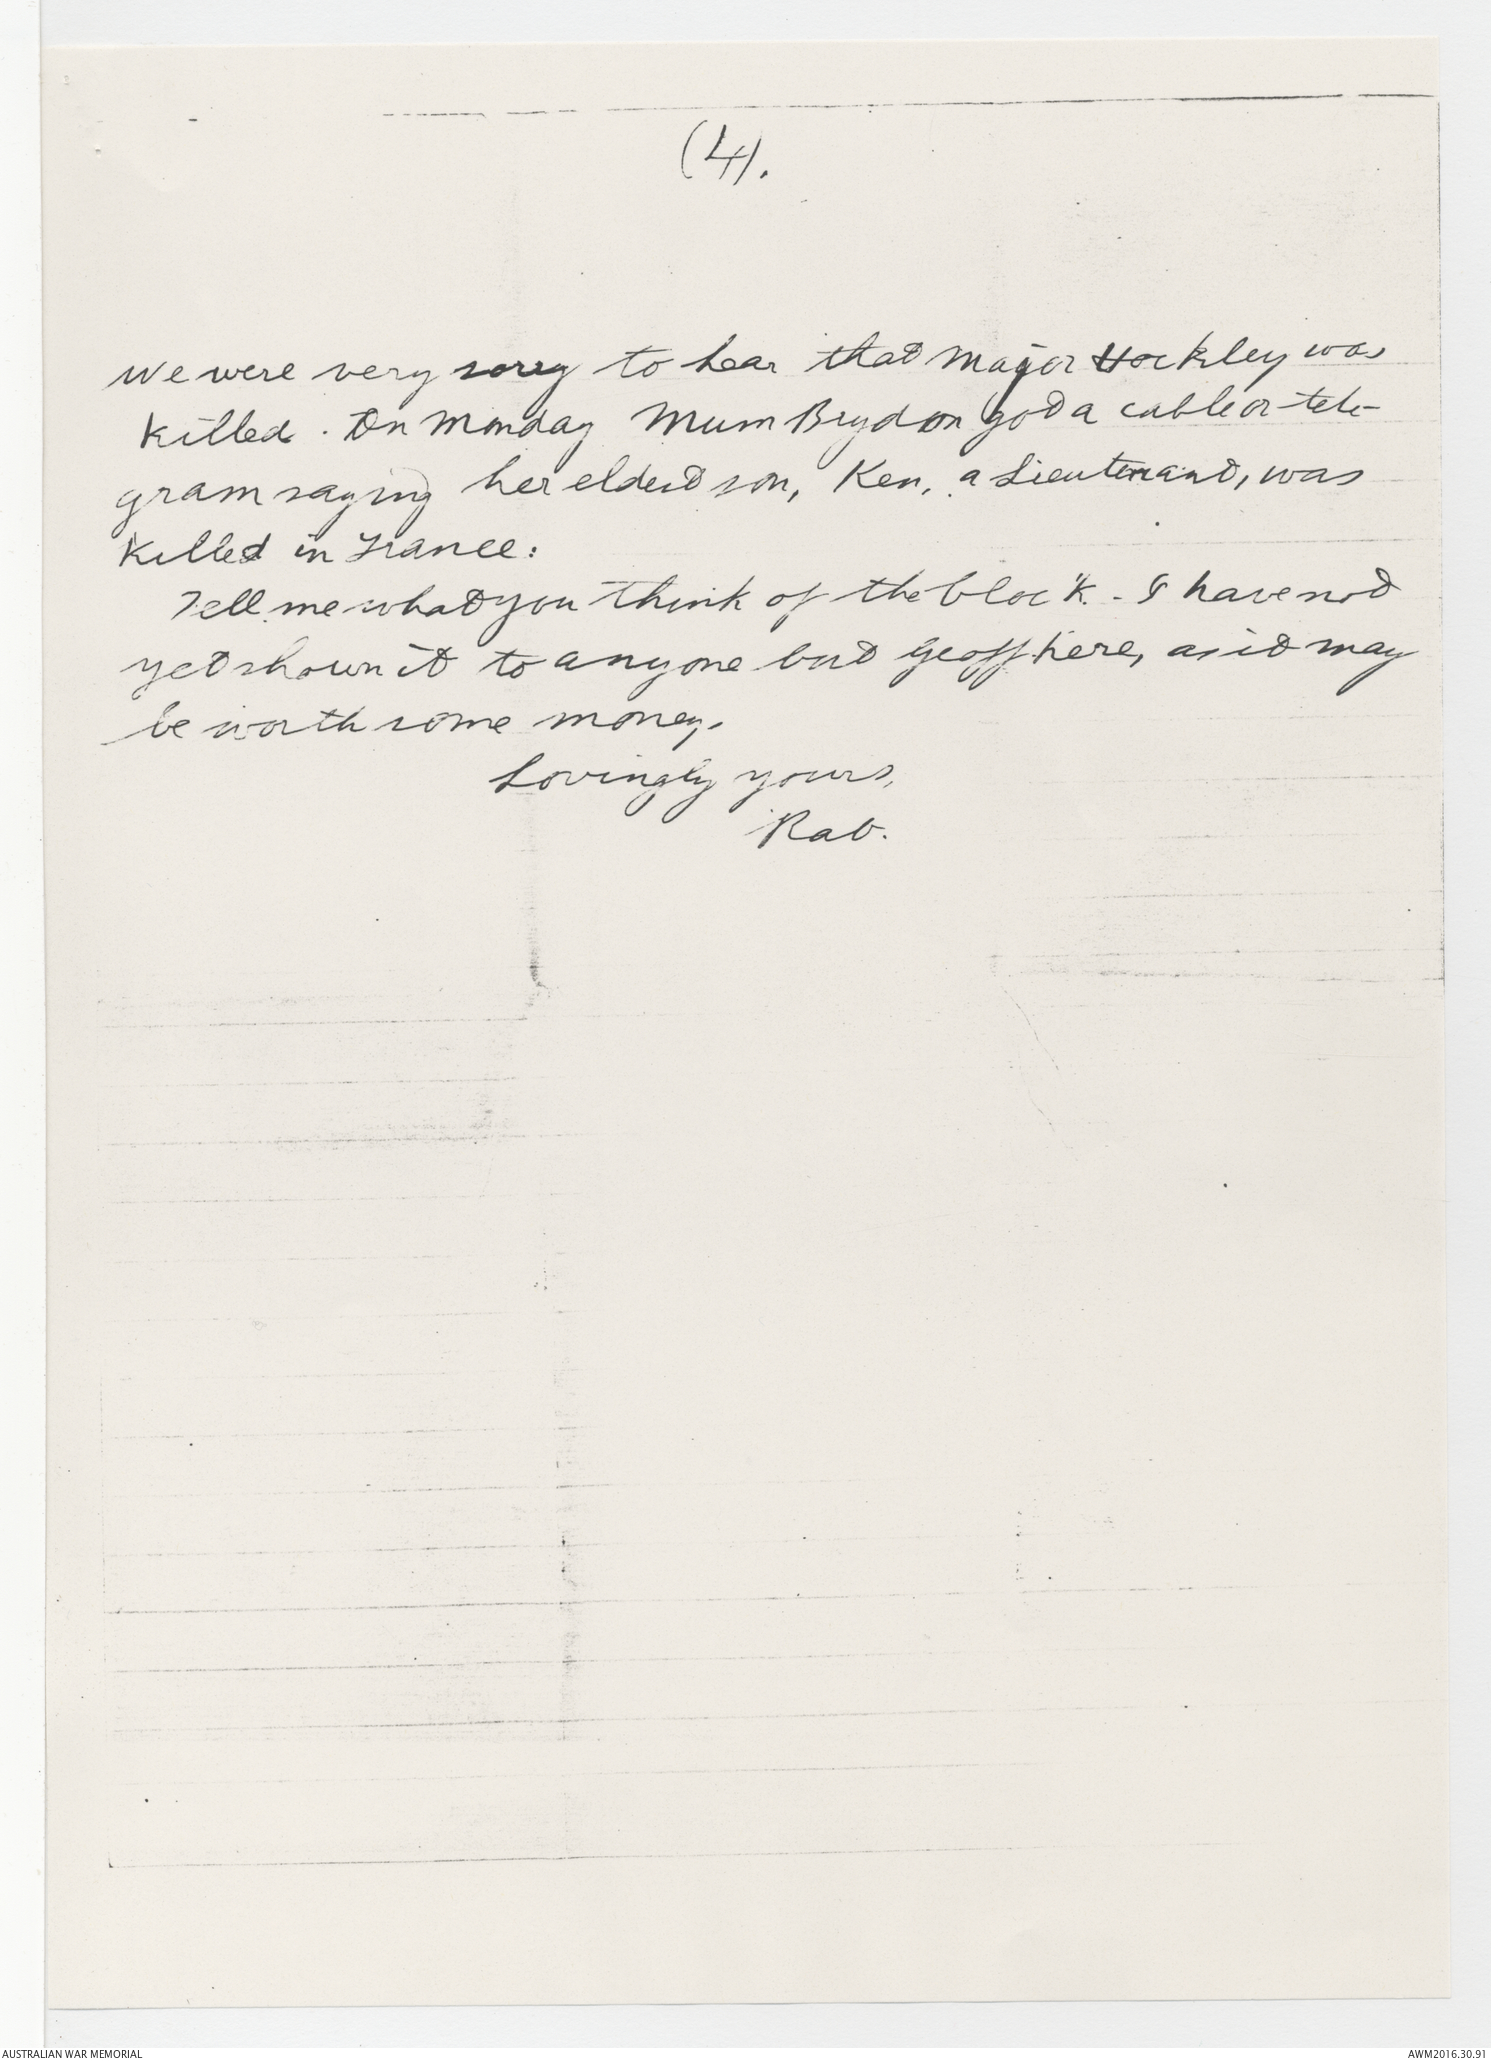 (4).
We were very sorry to hear that Major Hockley was
killed. On Monday Mum Brydon got a cable or tele-
gram saying her eldest son, Ken, a Lieutenant, was
killed in France:
Tell me what you think of the block. - I have not
yet shown it to anyone but Geoff here, as it may
be worth some money.
Lovingly yours,
Rab.
AUSTRALIAN WAR MEMORIAL
AWM2016.30.91